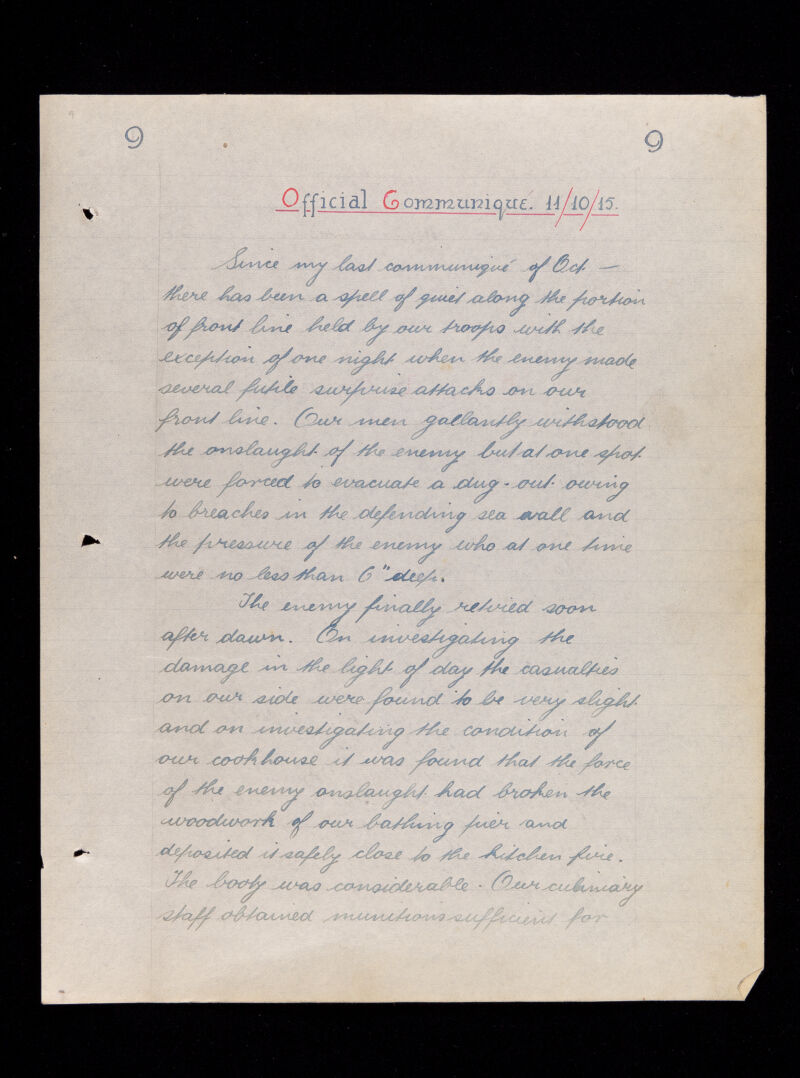 9 9
Official Communiqué. 11/10/15.
Since my last communiqué of Oct —
there has been a spell of quiet along the portion
of front line held by our troops with the
exception of one night when the enemy made
several futile surprise attacks on our
front line. Our men gallantly withstood
the onslaught of the enemy but at one spot
were forced to evacuate a dug-out owing
to breaches in the defending sea wall and
the pressure of the enemy who at one time
were no less than 6" deep.
The enemy finally retired soon
after dawn. On investigating the
damage in the light of day the casualties
on our side were found to be very slight
and on investigating the condition of
our cookhouse it was found that the force
of the enemy onslaught had broken the
woodwork of our bathing pier and
deposited it safely close to the kitchen fire.
The booty was considerable. Our culiniary
staff obtained munitions sufficient for